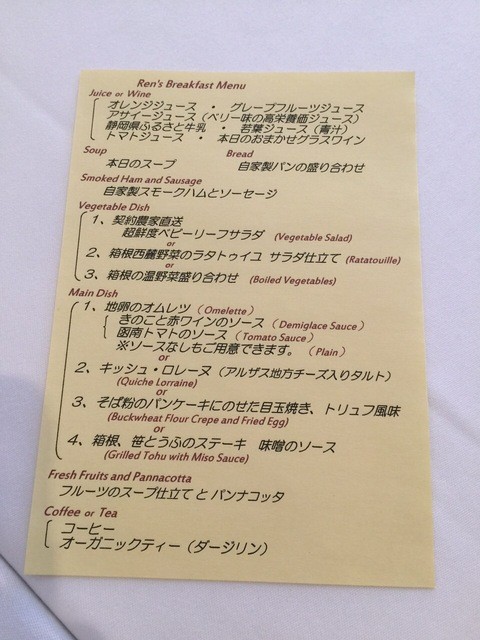 Ren's Breakfast Menu
Juice or Wine
オレンジジュース ・ グレープフルーツジュース
アサイージュース（ベリー味の高栄養価ジュース）
静岡県ふるさと牛乳 ・ 若葉ジュース（青汁）
トマトジュース ・ 本日のおまかせグラスワイン
Soup Bread
本日のスープ 自家製パンの盛り合わせ
Smoked Ham and Sausage
自家製スモークハムとソーセージ
Vegetable Dish
1、契約農家直送
超鮮度ベビーリーフサラダ (Vegetable Salad)
or
2、箱根西麓野菜のラタトゥイユ サラダ仕立て (Ratatouille)
or
3、箱根の温野菜盛り合わせ (Boiled Vegetables)
Main Dish
1、地卵のオムレツ（Omelette）
きのこと赤ワインのソース（Demiglace Sauce）
函南トマトのソース（Tomato Sauce）
※ソースなしもご用意できます。（Plain）
or
2、キッシュ・ロレーヌ（アルザス地方チーズ入りタルト）
(Quiche Lorraine)
or
3、そば粉のパンケーキにのせた目玉焼き、トリュフ風味
(Buckwheat Flour Crepe and Fried Egg)
or
4、箱根、笹とうふのステーキ 味噌のソース
(Grilled Tohu with Miso Sauce)
Fresh Fruits and Pannacotta
フルーツのスープ仕立て と パンナコッタ
Coffee or Tea
コーヒー
オーガニックティー（ダージリン）